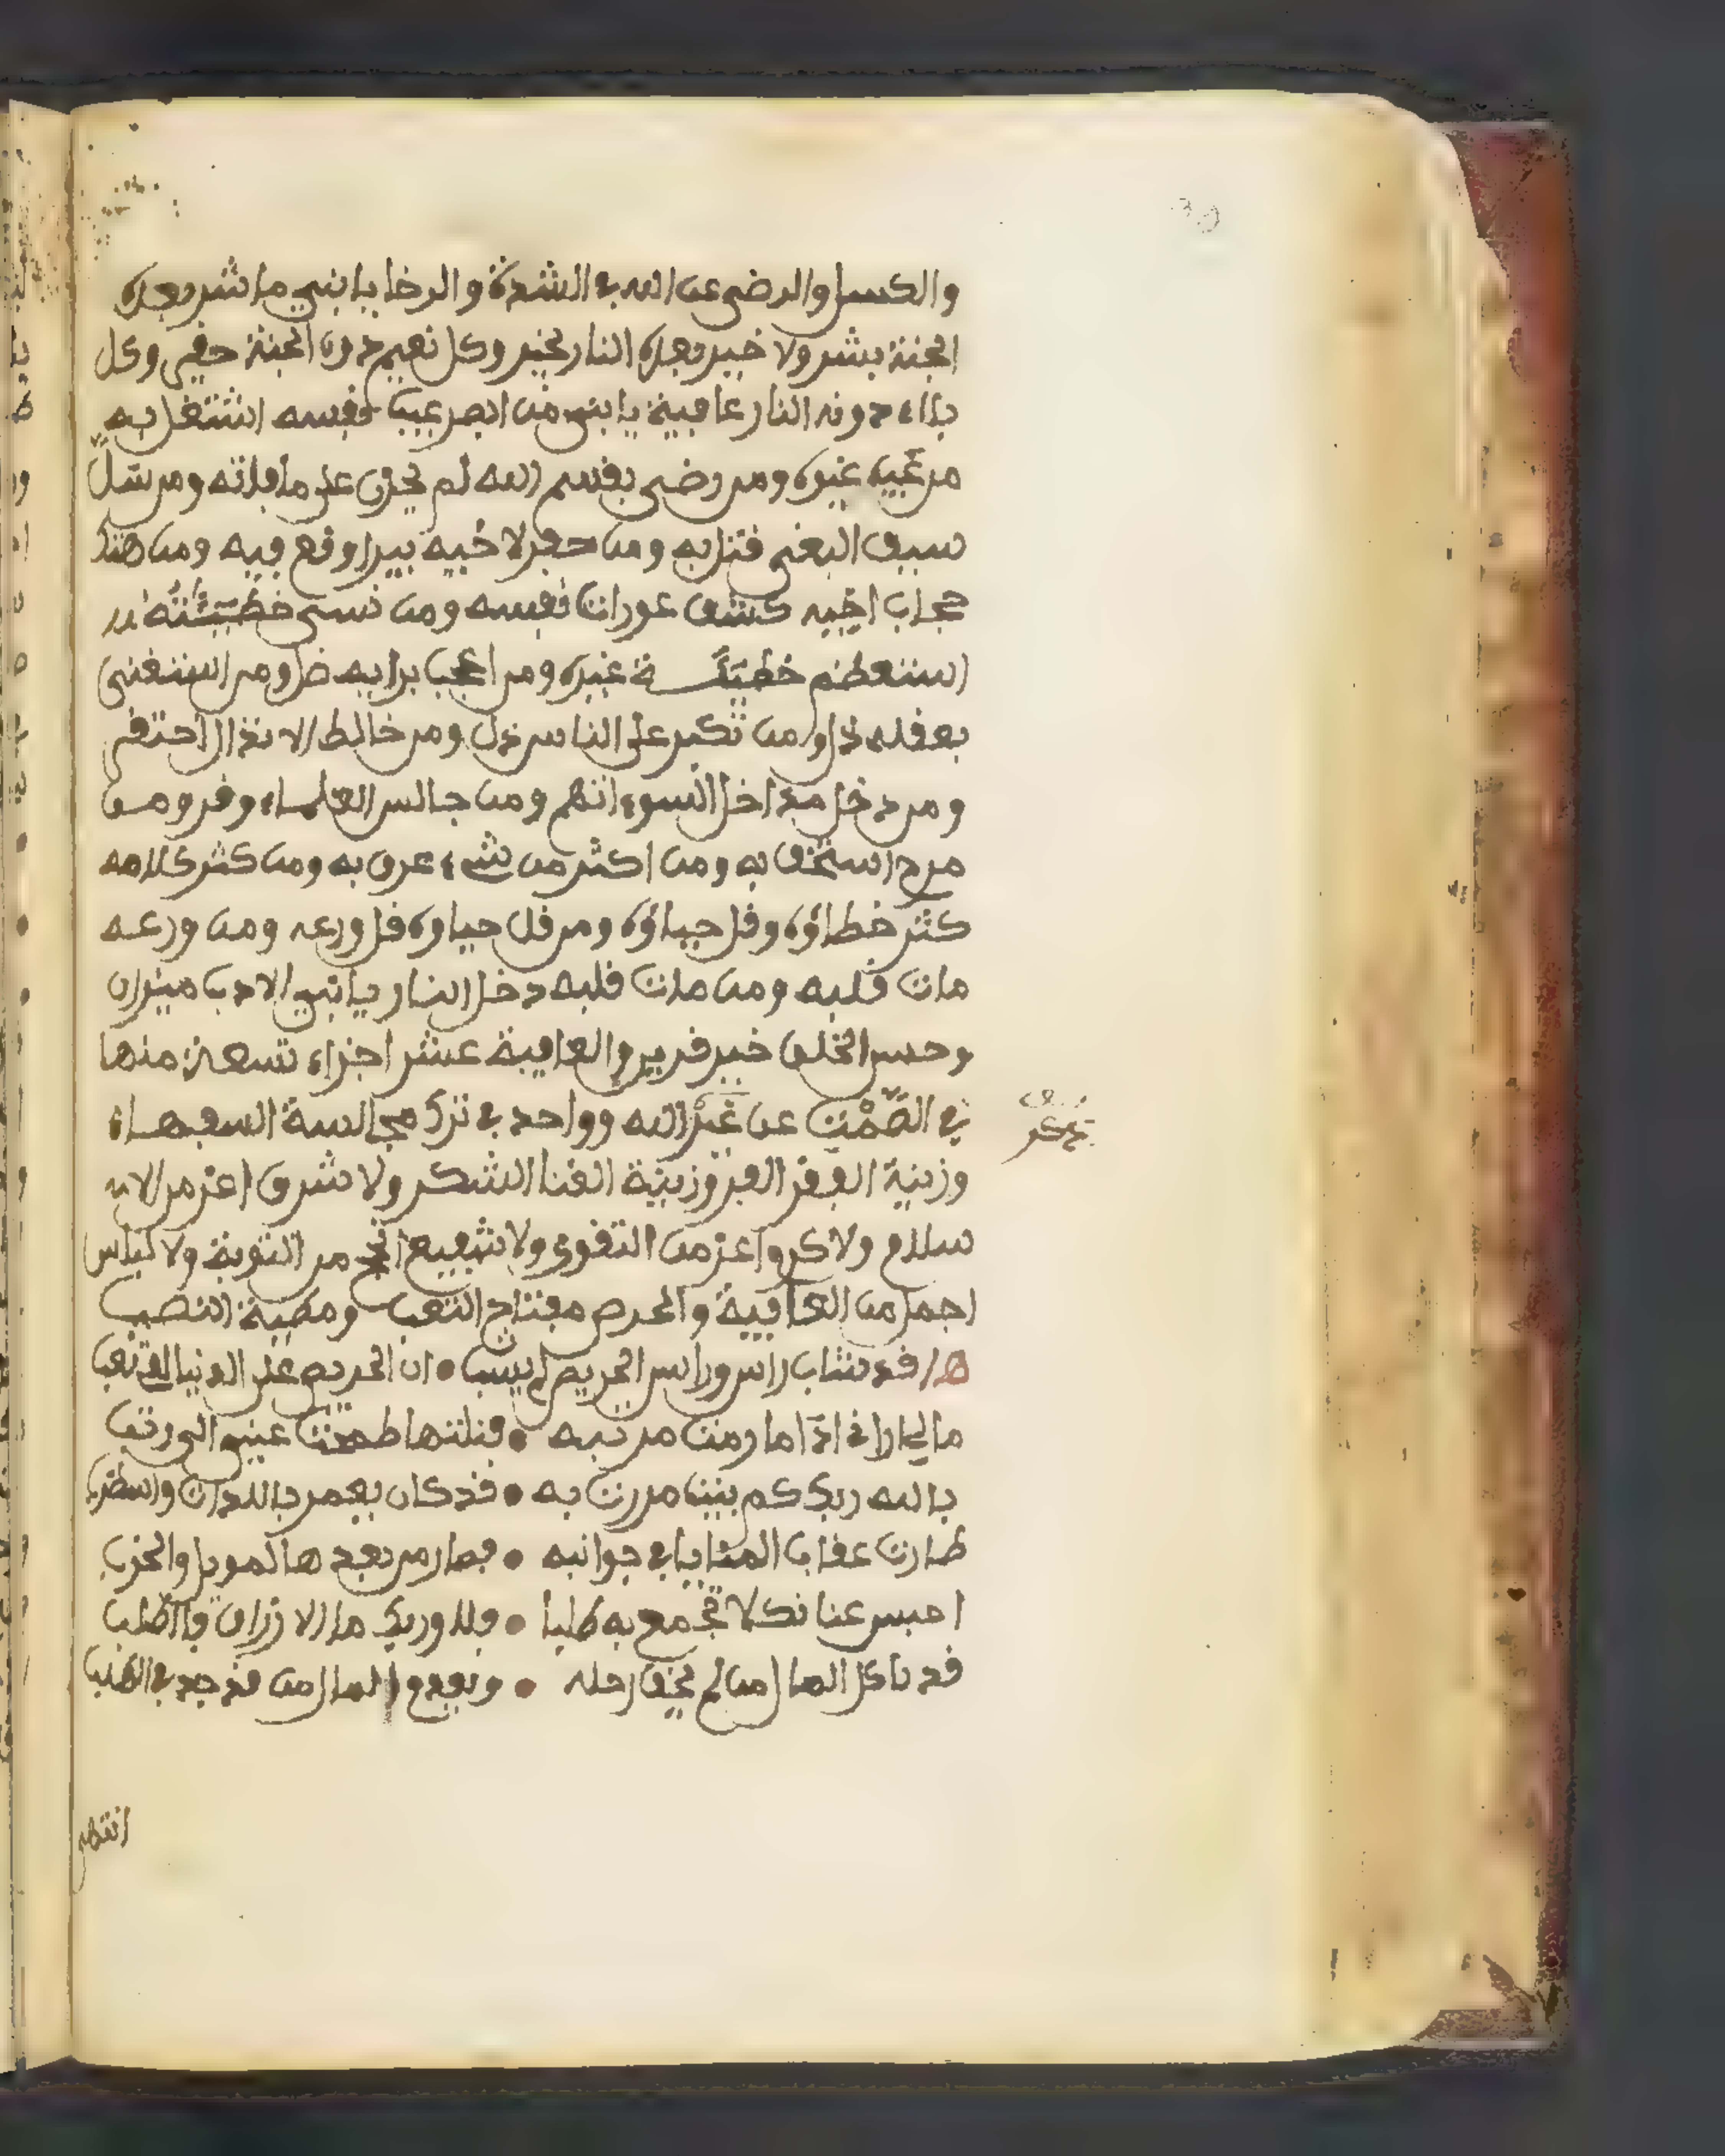 والكسل والرضى عن الله في الشدة والرخا يا بني ما شر بعده
الجنة بشر ولا خير بعده النار بخير وكل نعيم دون الجنة حقير وكل
بلاء دون النار عافية يا بني من ابصر عيب نفسه اشتغل به
من عيب غيره ومن رضي بقسم الله لم يحزن على ما فاته ومن سل
سيف البغي قتل به ومن حفر لاخيه بيرا وقع فيه ومن هتك
حجاب اخيه كشف عورات نفسه ومن نسي خطيئته
استعظم خطيئة غيره ومن اعجب برايه ضل ومن استغنى
بعقله زل ومن تكبر على الناس ذل ومن خالط الانذال احتقر
ومن دخل مداخل السوء اتهم ومن جالس العلماء وقر ومن
مزح استخف به ومن اكثر من شيء عرف به ومن كثر كلامه
كثر خطاؤه وقل حياؤه ومن قل حياوه قل ورعه ومن ورعه
مات قلبه ومن مات قلبه دخل النار يا بني الادب ميزان
وحسن الخلق خير قرين والعافية عشر اجزاء تسعة منها
في الصمت عن غير الله وواحد في ترك مجالسة السفهاء
ذكر
وزينة الفقر الصبر وزينة الغنا الشكر ولا شرف اعز من الا
سلام ولا كرم اعز من التقوى ولا شفيع انجح من التوبة ولا لباس
اجمل من العافية والحرص مفتاح التعب ومطية النصب
قد شاب راسي وراس الحريص لم يشب • ان الحريص على الدنيا لفي تعب
مالي اراني اذا ما رمت مرتبة • فنلتها طمحت عيني الى رتب
بالله ربك كم بيت مررت به • قد كان يعمر باللذات والطرب
طارت عقاب المنايا في جوانبه • فصار من بعدها للويل والحرب
احبس عنانك لا تجمح به طلبا • فلا وربك ما الارزاق بالطلب
قد ياكل المال من لم يخف راحلة • ويعدو المال من قد جد في الطلب
انتهى